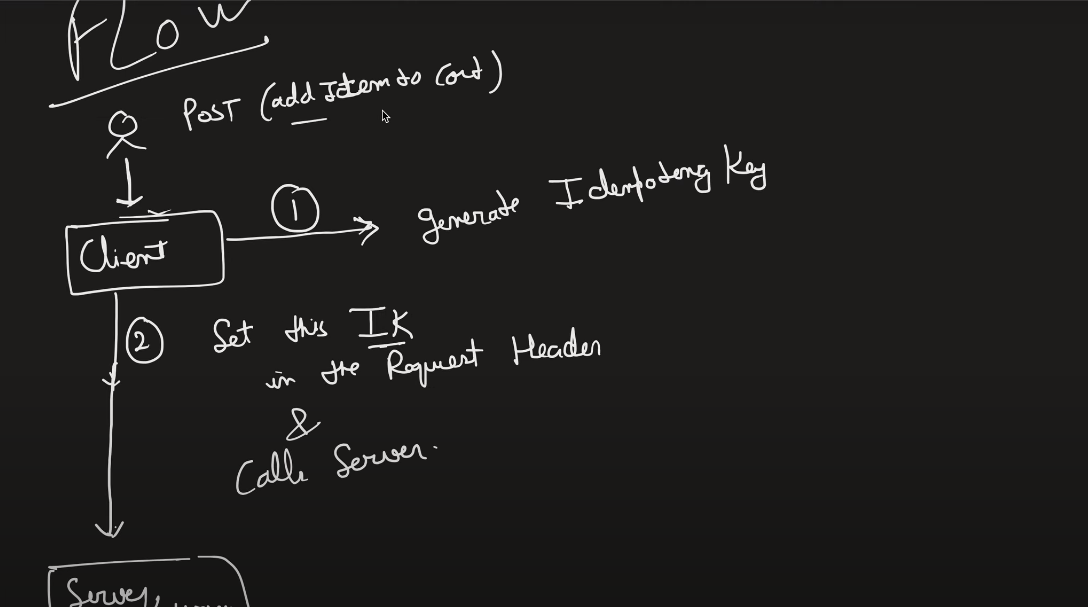 FLOW
POST (add Item to Cart)
1
generate Idempotency Key
Client
2
Set this IK
in the Request Header
&
Calls Server.
Server,